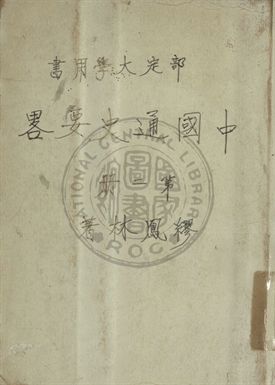 部定大學用書
中國通史要畧
第二冊
繆鳳林著
NATIONAL CENTRAL LIBRARY
R.O.C.
國家圖書館